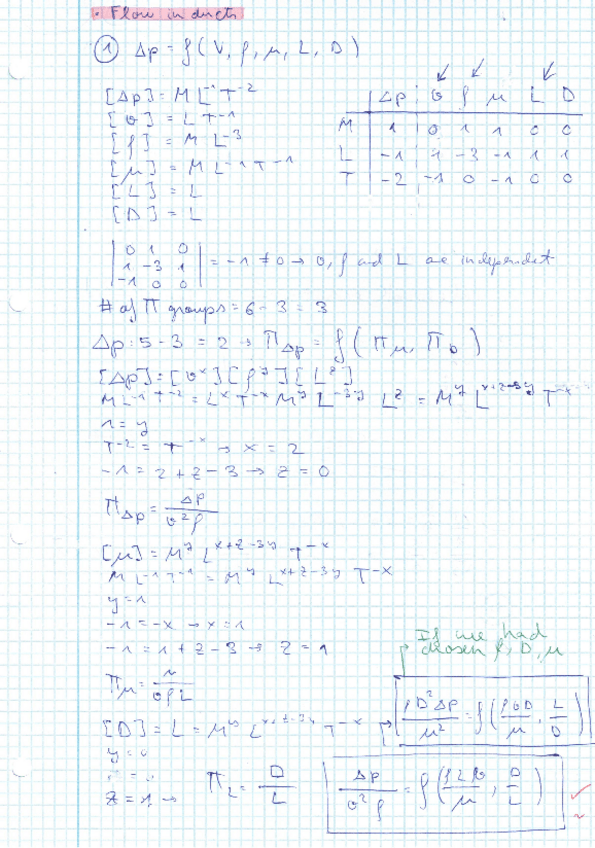 • Flow in ducts
① Δp = f (V, ρ, μ, L, D)
[Δp] = M L⁻¹ T⁻²
[v] = L T⁻¹
[ρ] = M L⁻³
[μ] = M L⁻¹ T⁻¹
[L] = L
[D] = L
Δp v ρ μ L D
M 1 0 1 1 0 0
L -1 1 -3 -1 1 1
T -2 -1 0 -1 0 0
| 0 1 0 |
| 1 -3 1 | = -1 ≠ 0 → v, ρ and L are independent
| -1 0 0 |
# of Π groups = 6 - 3 = 3
Δp : 5 - 3 = 2 → Π_Δp = f (Π_μ, Π_D)
[Δp] = [v^x] [ρ^y] [L^z]
M L⁻¹ T⁻² = L^x T^-x M^y L^-3y L^z = M^y L^x+z-3y T^-x
1 = y
T⁻² = T^-x → x = 2
-1 = 2 + z - 3 → z = 0
Π_Δp = Δp / v²ρ
[μ] = M^y L^x+z-3y T^-x
M L⁻¹ T⁻¹ = M^y L^x+z-3y T^-x
y = 1
-1 = -x → x = 1
-1 = 1 + z - 3 → z = 1
Π_μ = μ / vρL
If we had
chosen ρ, D, μ
ρD²Δp / μ² = f (ρvD / μ, L / D)
[D] = L = M^y L^x+z-3y T^-x
y = 0
z = 1 →
Π_L = D / L
Δp / v²ρ = f (ρLv / μ, D / L)